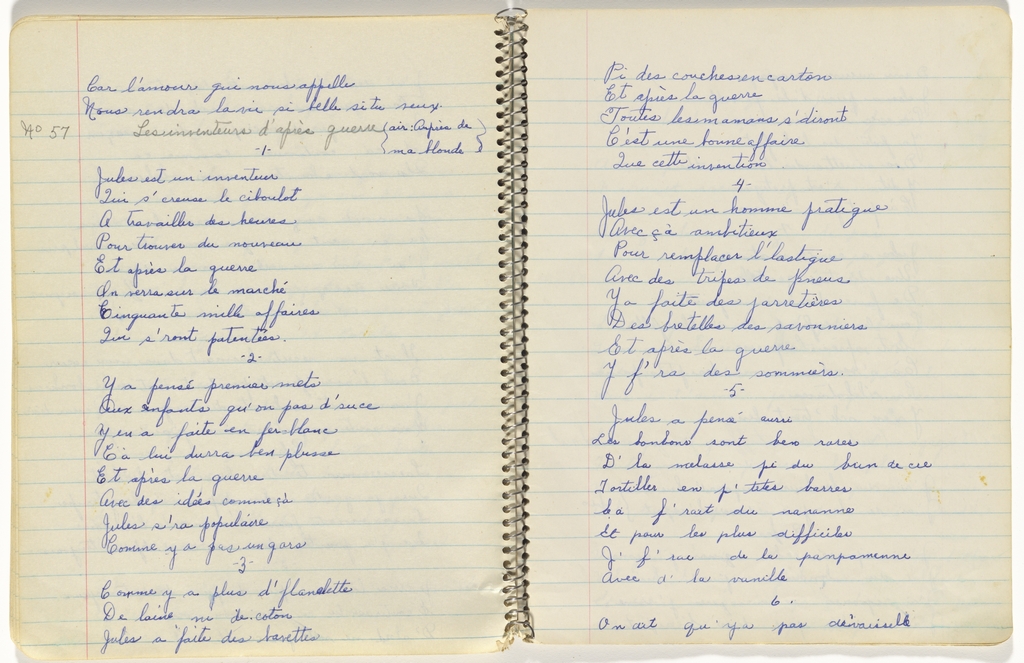 Car l'amour qui nous appelle
Nous rendra la vie si belle si tu veux.
No 57 Les inventeurs d'après guerre (air: Auprès de
ma blonde)
-1-
Jules est un inventeur
Qui s'creuse le ciboulot
A travailler des heures
Pour trouver du nouveau
Et après la guerre
On verra sur le marché
Cinquante mille affaires
Qui s'ront patentées.
-2-
Y a pensé premier mets
Aux enfants qu'on pas d'suce
Y en a faite en fer-blanc
Cà lui durra ben plusse
Et après la guerre
Avec des idées comme çà
Jules s'ra populaire
Comme y a pas un gars
-3-
Comme y a plus d'flanelette
De laine ni de coton
Jules a faite des bavettes
Pi des couches en carton
Et après la guerre
Toutes les mamans s'diront
C'est une bonne affaire
Que cette invention
4-
Jules est un homme pratique
Avec çà ambitieux
Pour remplacer l'lastique
Avec des tripes de pneus
Y a faite des jarretières
Des bretelles des savonniers
Et après la guerre
Y f'ra des sommiers.
-5-
Jules a pensé aussi
Les bonbons sont ben rares
D'la melasse pi du bran de cie
Tortiller en p'tites barres
Ca f'rait du nananne
Et pour les plus difficiles
J'f'rai de la panpamenne
Avec d'la vanille
6.
On dit qu'ya pas d'vaisselle